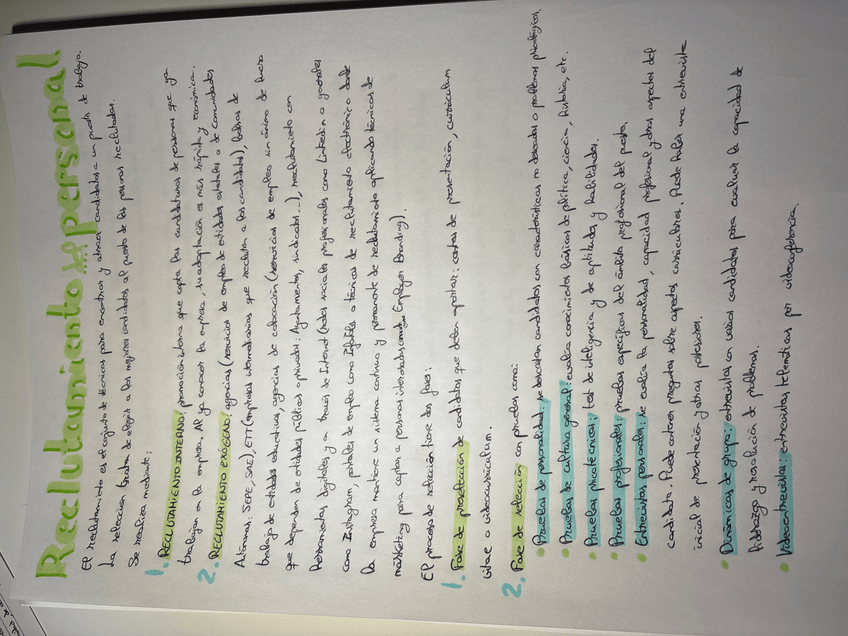 Reclutamiento del personal
El reclutamiento es el conjunto de técnicas para encontrar y atraer candidatos a un puesto de trabajo.
La selección trata de elegir a los mejores candidatos al puesto de las personas reclutadas.
Se realiza mediante:
1. RECLUTAMIENTO INTERNO: promoción interna que capta las candidaturas de personas que ya
trabajan en la empresa. Al ya conocer la empresa, su adaptación es más rápida y económica.
2. RECLUTAMIENTO EXÓGENO: agencias (servicios de empleo de entidades estatales o de comunidades
Autónomas, SEPE, SAE), ETT (empresas intermediarias que reclutan a los candidatos), bolsas de
trabajo de entidades educativas, agencias de colocación (servicios de empleo sin ánimo de lucro
que dependen de entidades públicas o privadas: Ayuntamientos, sindicatos...), reclutamiento con
herramientas digitales y a través de Internet (redes sociales profesionales como Linkedin o generales
como Instagram, portales de empleo como Infojobs o técnicas de reclutamiento electrónico donde
la empresa mantiene un sistema continuo y permanente de reclutamiento aplicando técnicas de
marketing para captar a personas interesadas como Employer Branding).
El proceso de selección tiene dos fases:
1. Fase de preselección de candidatos que deben aportar: cartas de presentación, currículum
vitae o videocurrículum.
2. Fase de selección con pruebas como:
• Pruebas de personalidad: se descartan candidatos con características no deseadas o problemas psicológicos.
• Pruebas de cultura general: evalúa conocimientos básicos de política, ciencia, historia, etc.
• Pruebas psicotécnicas: test de inteligencia y de aptitudes y habilidades.
• Pruebas profesionales: pruebas específicas del ámbito profesional del puesto.
• Entrevistas personales: se evalúa la personalidad, capacidad profesional y otros aspectos del
candidato. Puede contener preguntas sobre aspectos curriculares. Puede haber una entrevista
inicial de presentación y otras posteriores.
• Dinámicas de grupo: entrevistas con varios candidatos para evaluar la capacidad de
liderazgo y resolución de problemas.
• Videoentrevistas: entrevistas telemáticas por videoconferencia.